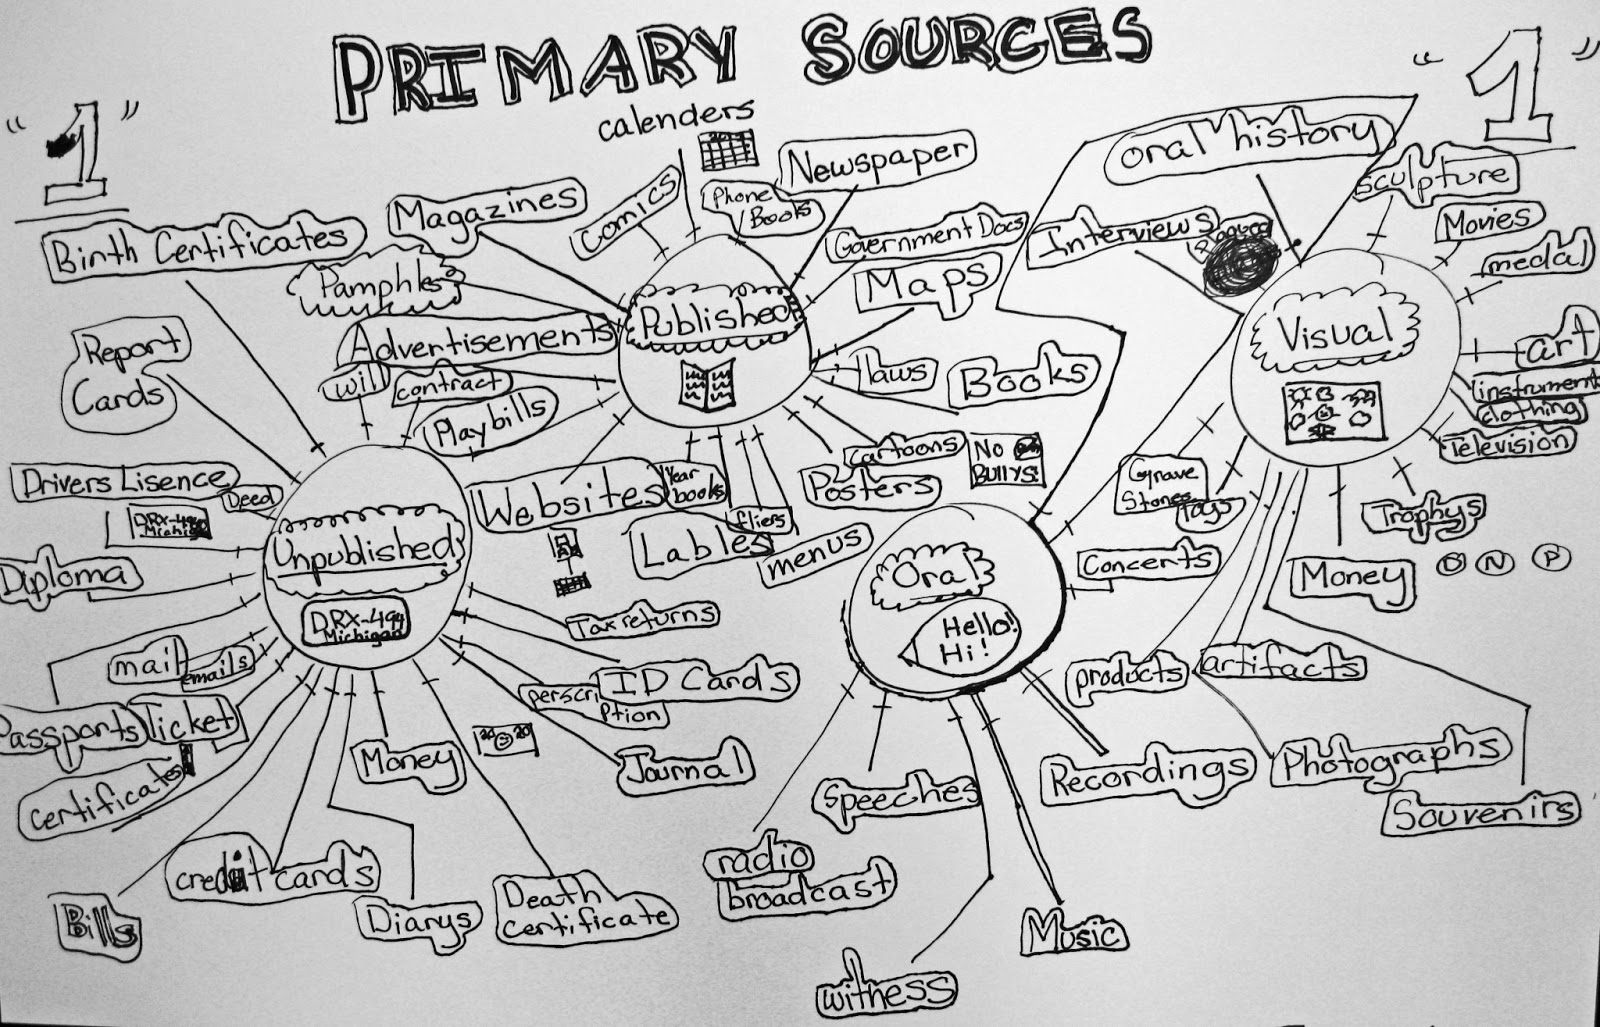 PRIMARY SOURCES
"1"
"1"
calenders
Newspaper
Oral history
sculpture
Magazines
Comics
Phone
Books
Movies
Birth Certificates
Government Docs
Interviews
medal
Pamphlets
Maps
Published
Visual
Report
Cards
Advertisements
art
will
contract
laws
Books
instrument
clothing
Playbills
Television
cartoons
No
BULLYS!
Drivers Lisence
Deed
Websites
Year
books
Posters
Grave
Stones
Toys
Trophys
DRX-494
Michigan
fliers
Lables
menus
Unpublished
Concerts
Diploma
Oral
Money
D N P
DRX-494
Michigan
Tax returns
Hello!
Hi!
mail
emails
perscri
ption
ID Cards
products
artifacts
Passports
Ticket
20 20
Money
Journal
Recordings
Photographs
certificates
speeches
Souvenirs
credit cards
radio
broadcast
Bills
Diarys
Death
certificate
Music
witness